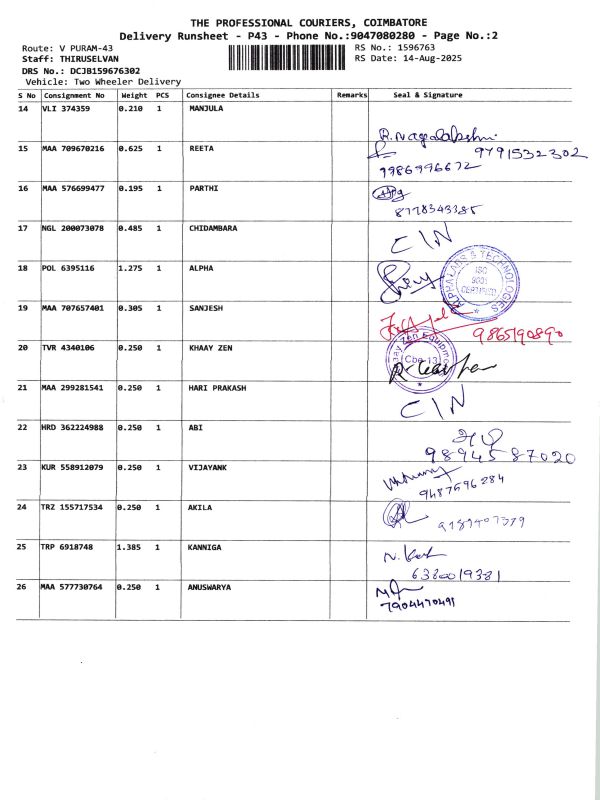 THE PROFESSIONAL COURIERS, COIMBATORE
Delivery Runsheet - P43 - Phone No.:9047080280 - Page No.:2
Route: V PURAM-43 RS No.: 1596763
Staff: THIRUSELVAN RS Date: 14-Aug-2025
DRS No.: DCJB159676302
Vehicle: Two Wheeler Delivery
S No Consignment No Weight PCS Consignee Details Remarks Seal & Signature
14 VLI 374359 0.210 1 MANJULA
R. Nagalakshmi
9791532302
15 MAA 709670216 0.625 1 REETA
9986996672
16 MAA 576699477 0.195 1 PARTHI
8778343385
17 NGL 200073078 0.485 1 CHIDAMBARA C/N
18 POL 6395116 1.275 1 ALPHA
ALPHA LABS & TECHNOLOGIES
ISO
9001
CERTIFIED
19 MAA 707657401 0.305 1 SANJESH
9865190890
20 TVR 4340106 0.250 1 KHAAY ZEN
Cbe-13
21 MAA 299281541 0.250 1 HARI PRAKASH C/N
22 HRD 362224988 0.250 1 ABI
9894587020
23 KUR 558912079 0.250 1 VIJAYANK
9487596284
24 TRZ 155717534 0.250 1 AKILA
25 TRP 6918748 1.385 1 KANNIGA
6380019381
26 MAA 577730764 0.250 1 ANUSWARYA
7904470491